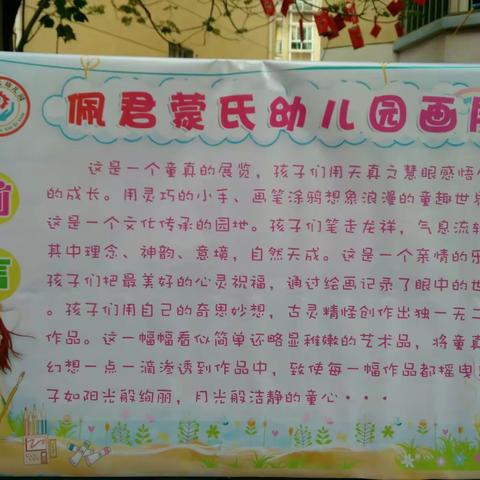 佩君蒙氏幼儿园画
前
言
这是一个童真的展览，孩子们用天真之慧眼感悟
的成长。用灵巧的小手、画笔涂鸦想象浪漫的童趣世
这是一个文化传承的园地。孩子们笔走龙祥，气息流
其中理念、神韵、意境，自然天成。这是一个亲情的乐
孩子们把最美好的心灵祝福，通过绘画记录了眼中的世
。孩子们用自己的奇思妙想，古灵精怪创作出独一无二
作品。这一幅幅看似简单还略显稚嫩的艺术品，将童真
幻想一点一滴渗透到作品中，致使每一幅作品都摇曳
子如阳光般绚丽，月光般洁静的童心···